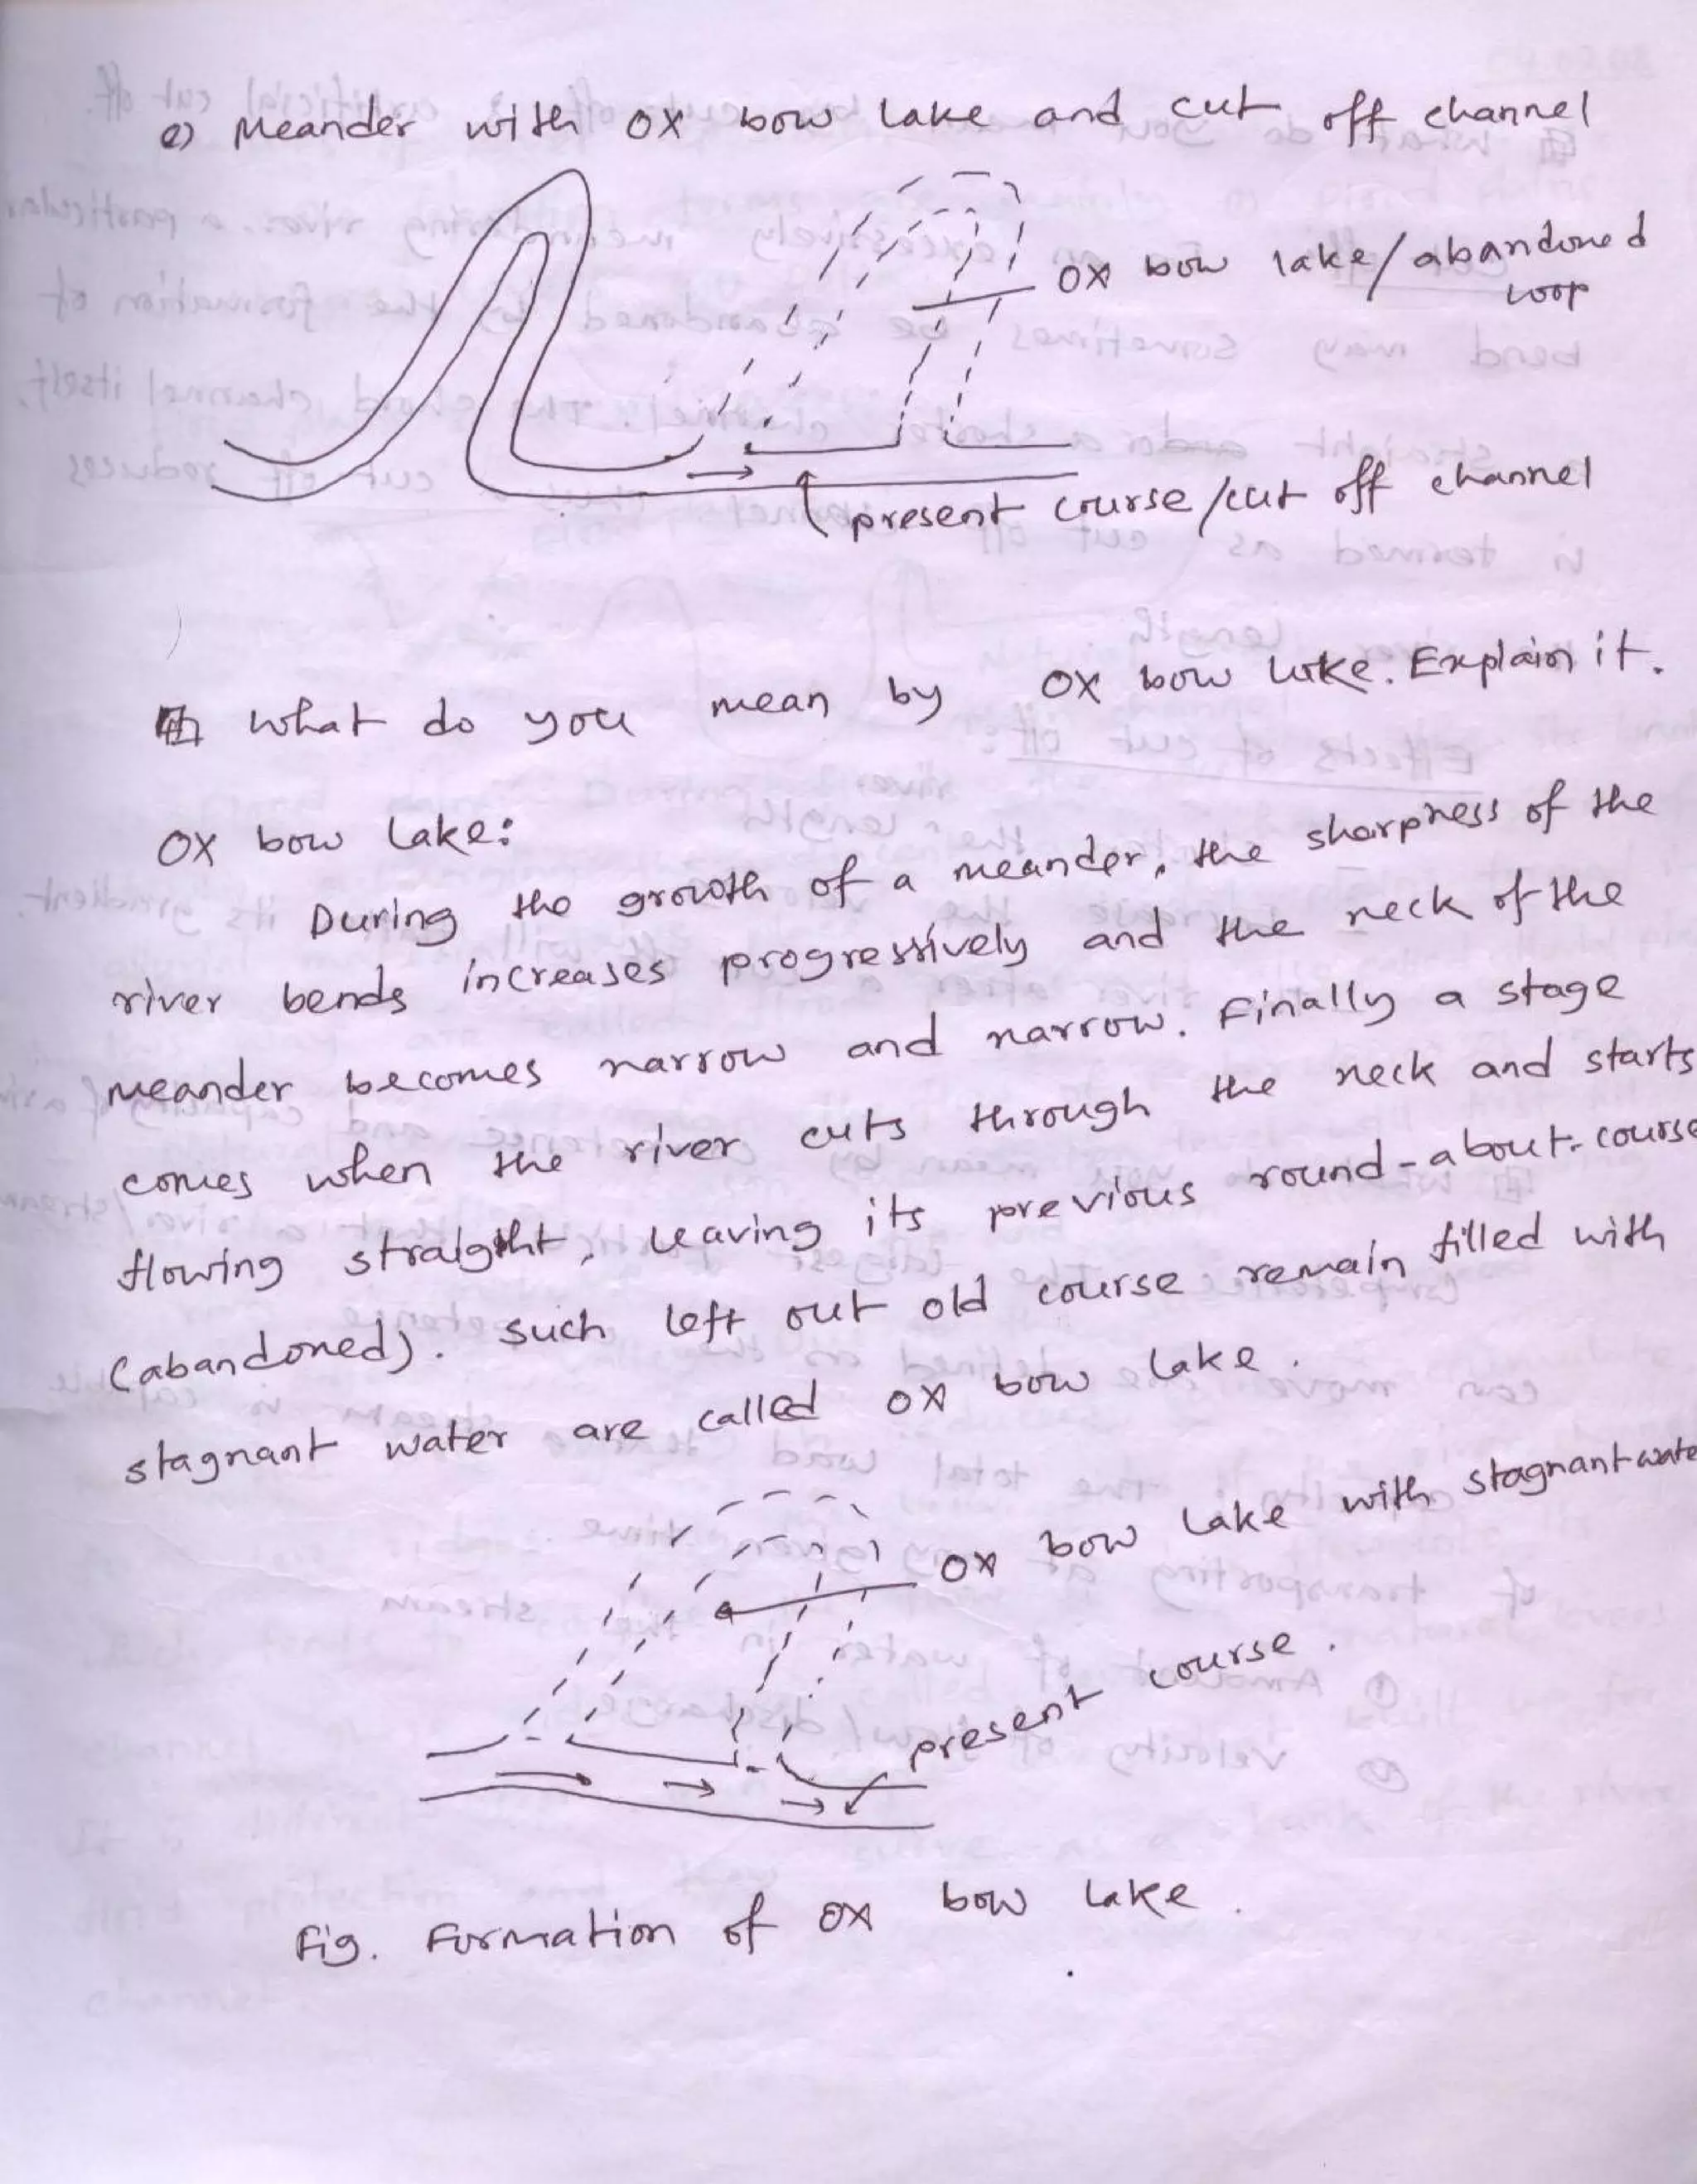 e) Meander with ox bow lake and cut off channel
ox bow lake/abandoned
loop
present course/cut off channel
What do you mean by ox bow lake. Explain it.
Ox bow lake:
During the growth of a meander, the sharpness of the
river bends increases progressively and the neck of the
meander becomes narrow and narrow. Finally a stage
comes when the river cuts through the neck and starts
flowing straight, leaving its previous round-about-course
(abandoned). Such left out old course remain filled with
stagnant water are called ox bow lake.
ox bow lake with stagnant wate
present course.
Fig. Formation of ox bow lake.